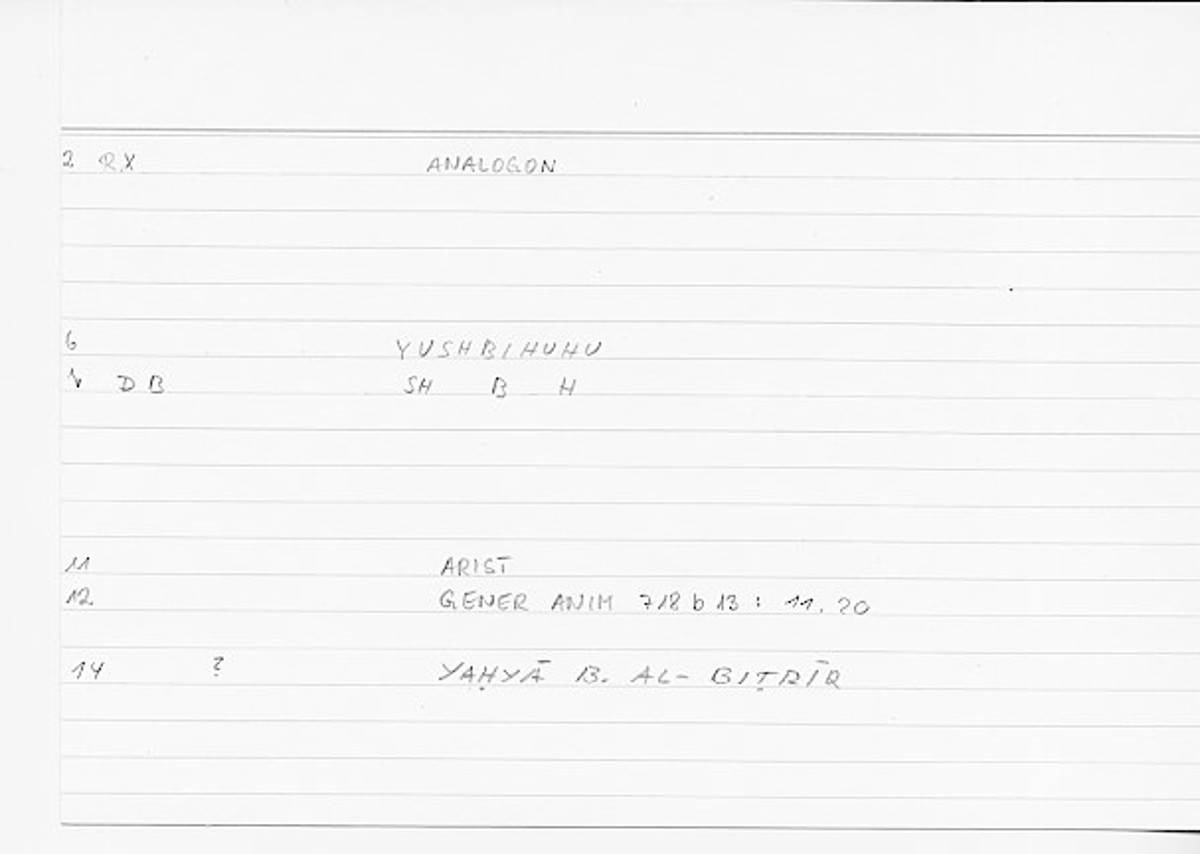 2 RX ANALOGON
6 YUSHBIHUHU
DB SH B H
11 ARIST
12 GENER ANIM 718 b 13 : 11.20
14 ? YAḤYĀ B. AL-BIṬRĪQ